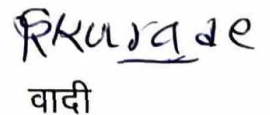 RKurade
वादी